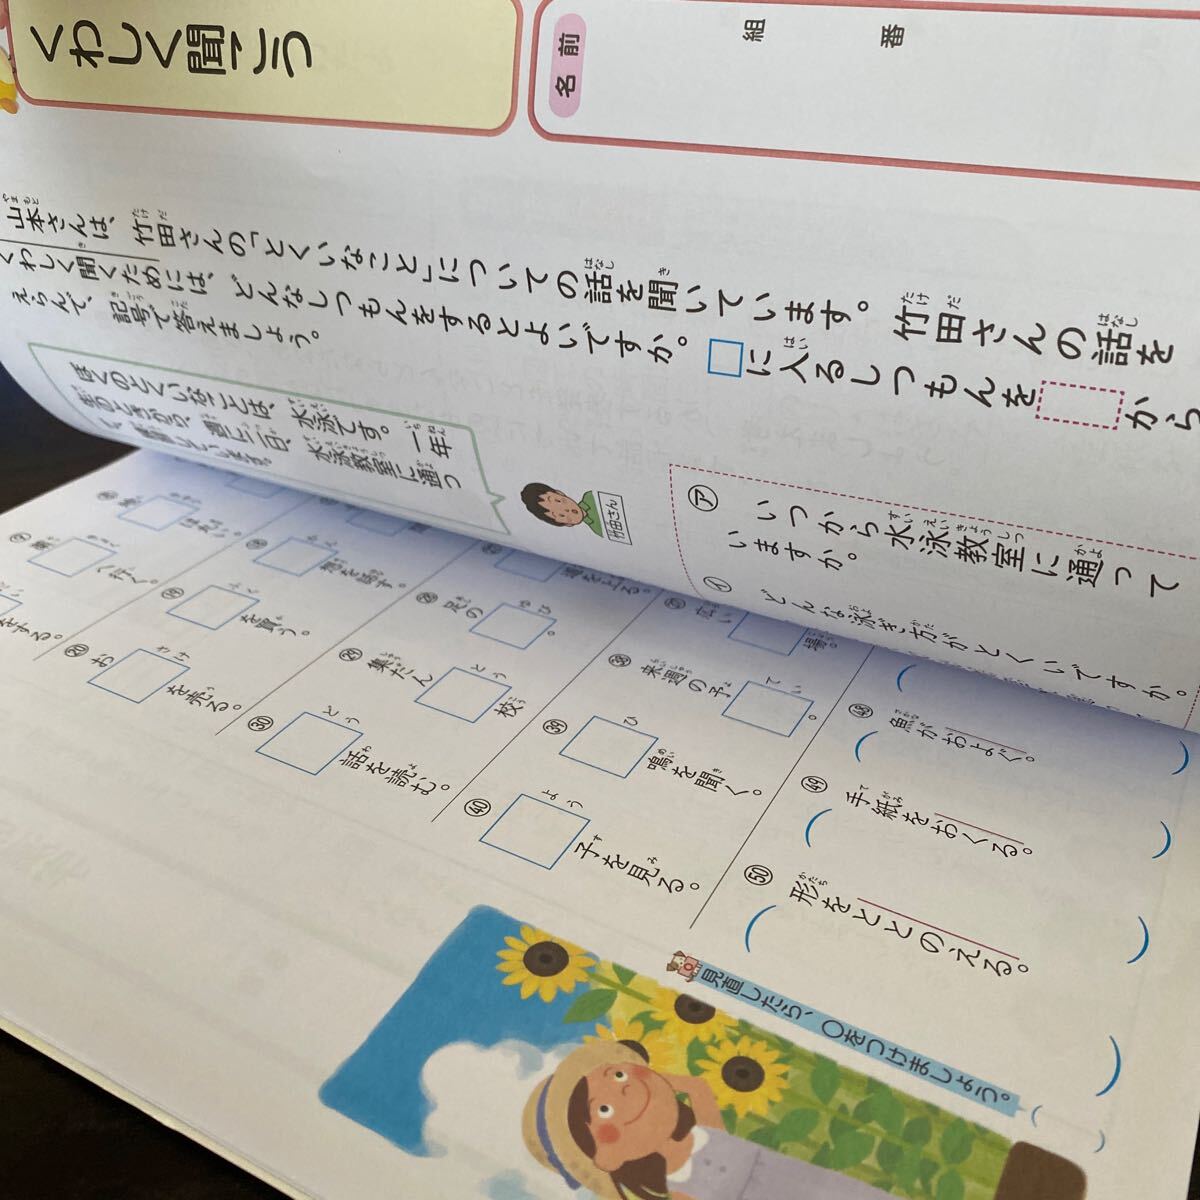 くわしく聞こう
名前
組
番
山本さんは、竹田さんの「とくいなこと」についての話を聞いています。竹田さんの話を
くわしく聞くためには、どんなしつもんをするとよいですか。□に入るしつもんを から
えらんで、記号で答えましょう。
ぼくのとくいなことは、水泳です。一年
生のときから、週に二日、水泳教室に通っ
竹田さん
㋐ いつから水泳教室に通って
いますか。
㋑ どんな泳ぎ方がとくいですか。
へ行く。
⑲ を買う。
⑳ お を売る。
を話す。
㉘ 足の 。
㉙ 集だん 校
㉚ 話を読む。
㊲ 広い 場。
㊳ 来週の予 。
㊴ 鳴を聞く。
㊵ 子を見る。
㊽ 魚がおよぐ。
㊾ 手紙をおくる。
㊿ 形をととのえる。
見直したら、○をつけましょう。